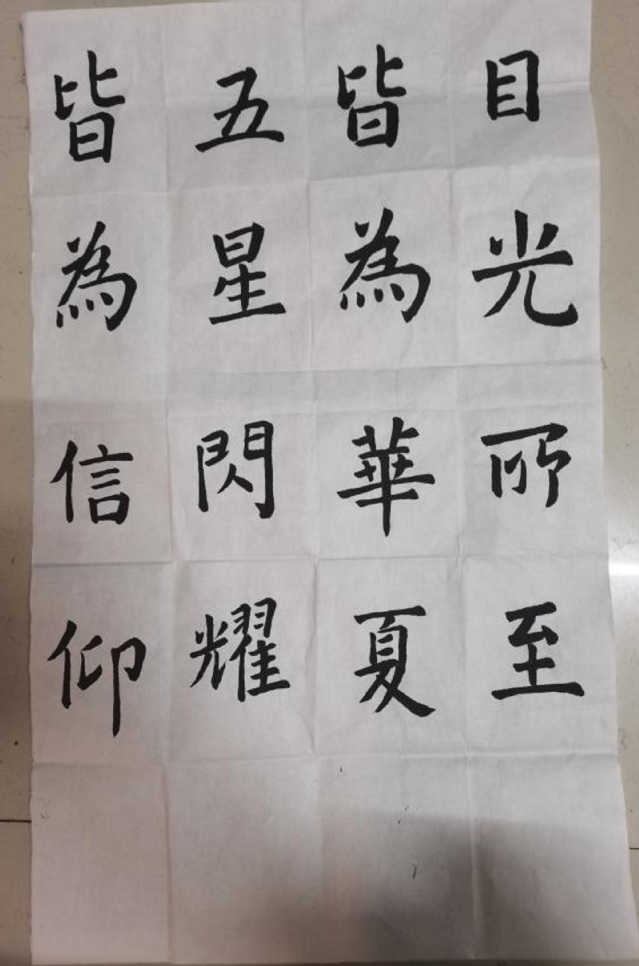 目光所至
皆為華夏
五星閃耀
皆為信仰